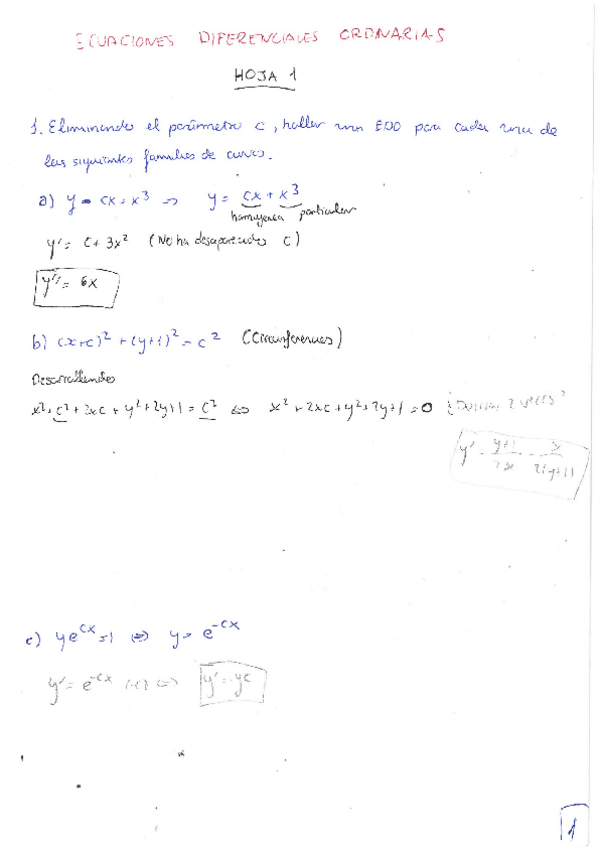 ECUACIONES DIFERENCIALES ORDINARIAS
HOJA 1
1. Eliminando el parámetro c, hallar una EDO para cada una de
las siguientes familias de curvas.
a) y - cx = x³ => y = cx + x³
homogenea particular
y' = c + 3x² (No ha desaparecido c)
y'' = 6x
b) (x+c)² + (y+1)² = c² (Circunferencias)
Desarrollando
x² + c² + 2xc + y² + 2y + 1 = c² <=> x² + 2xc + y² + 2y + 1 = 0
y' = y+1/2x - x/2(y+1)
c) ye^cx = 1 <=> y = e^-cx
y' = e^-cx (-c) <=> y' = -yc
1